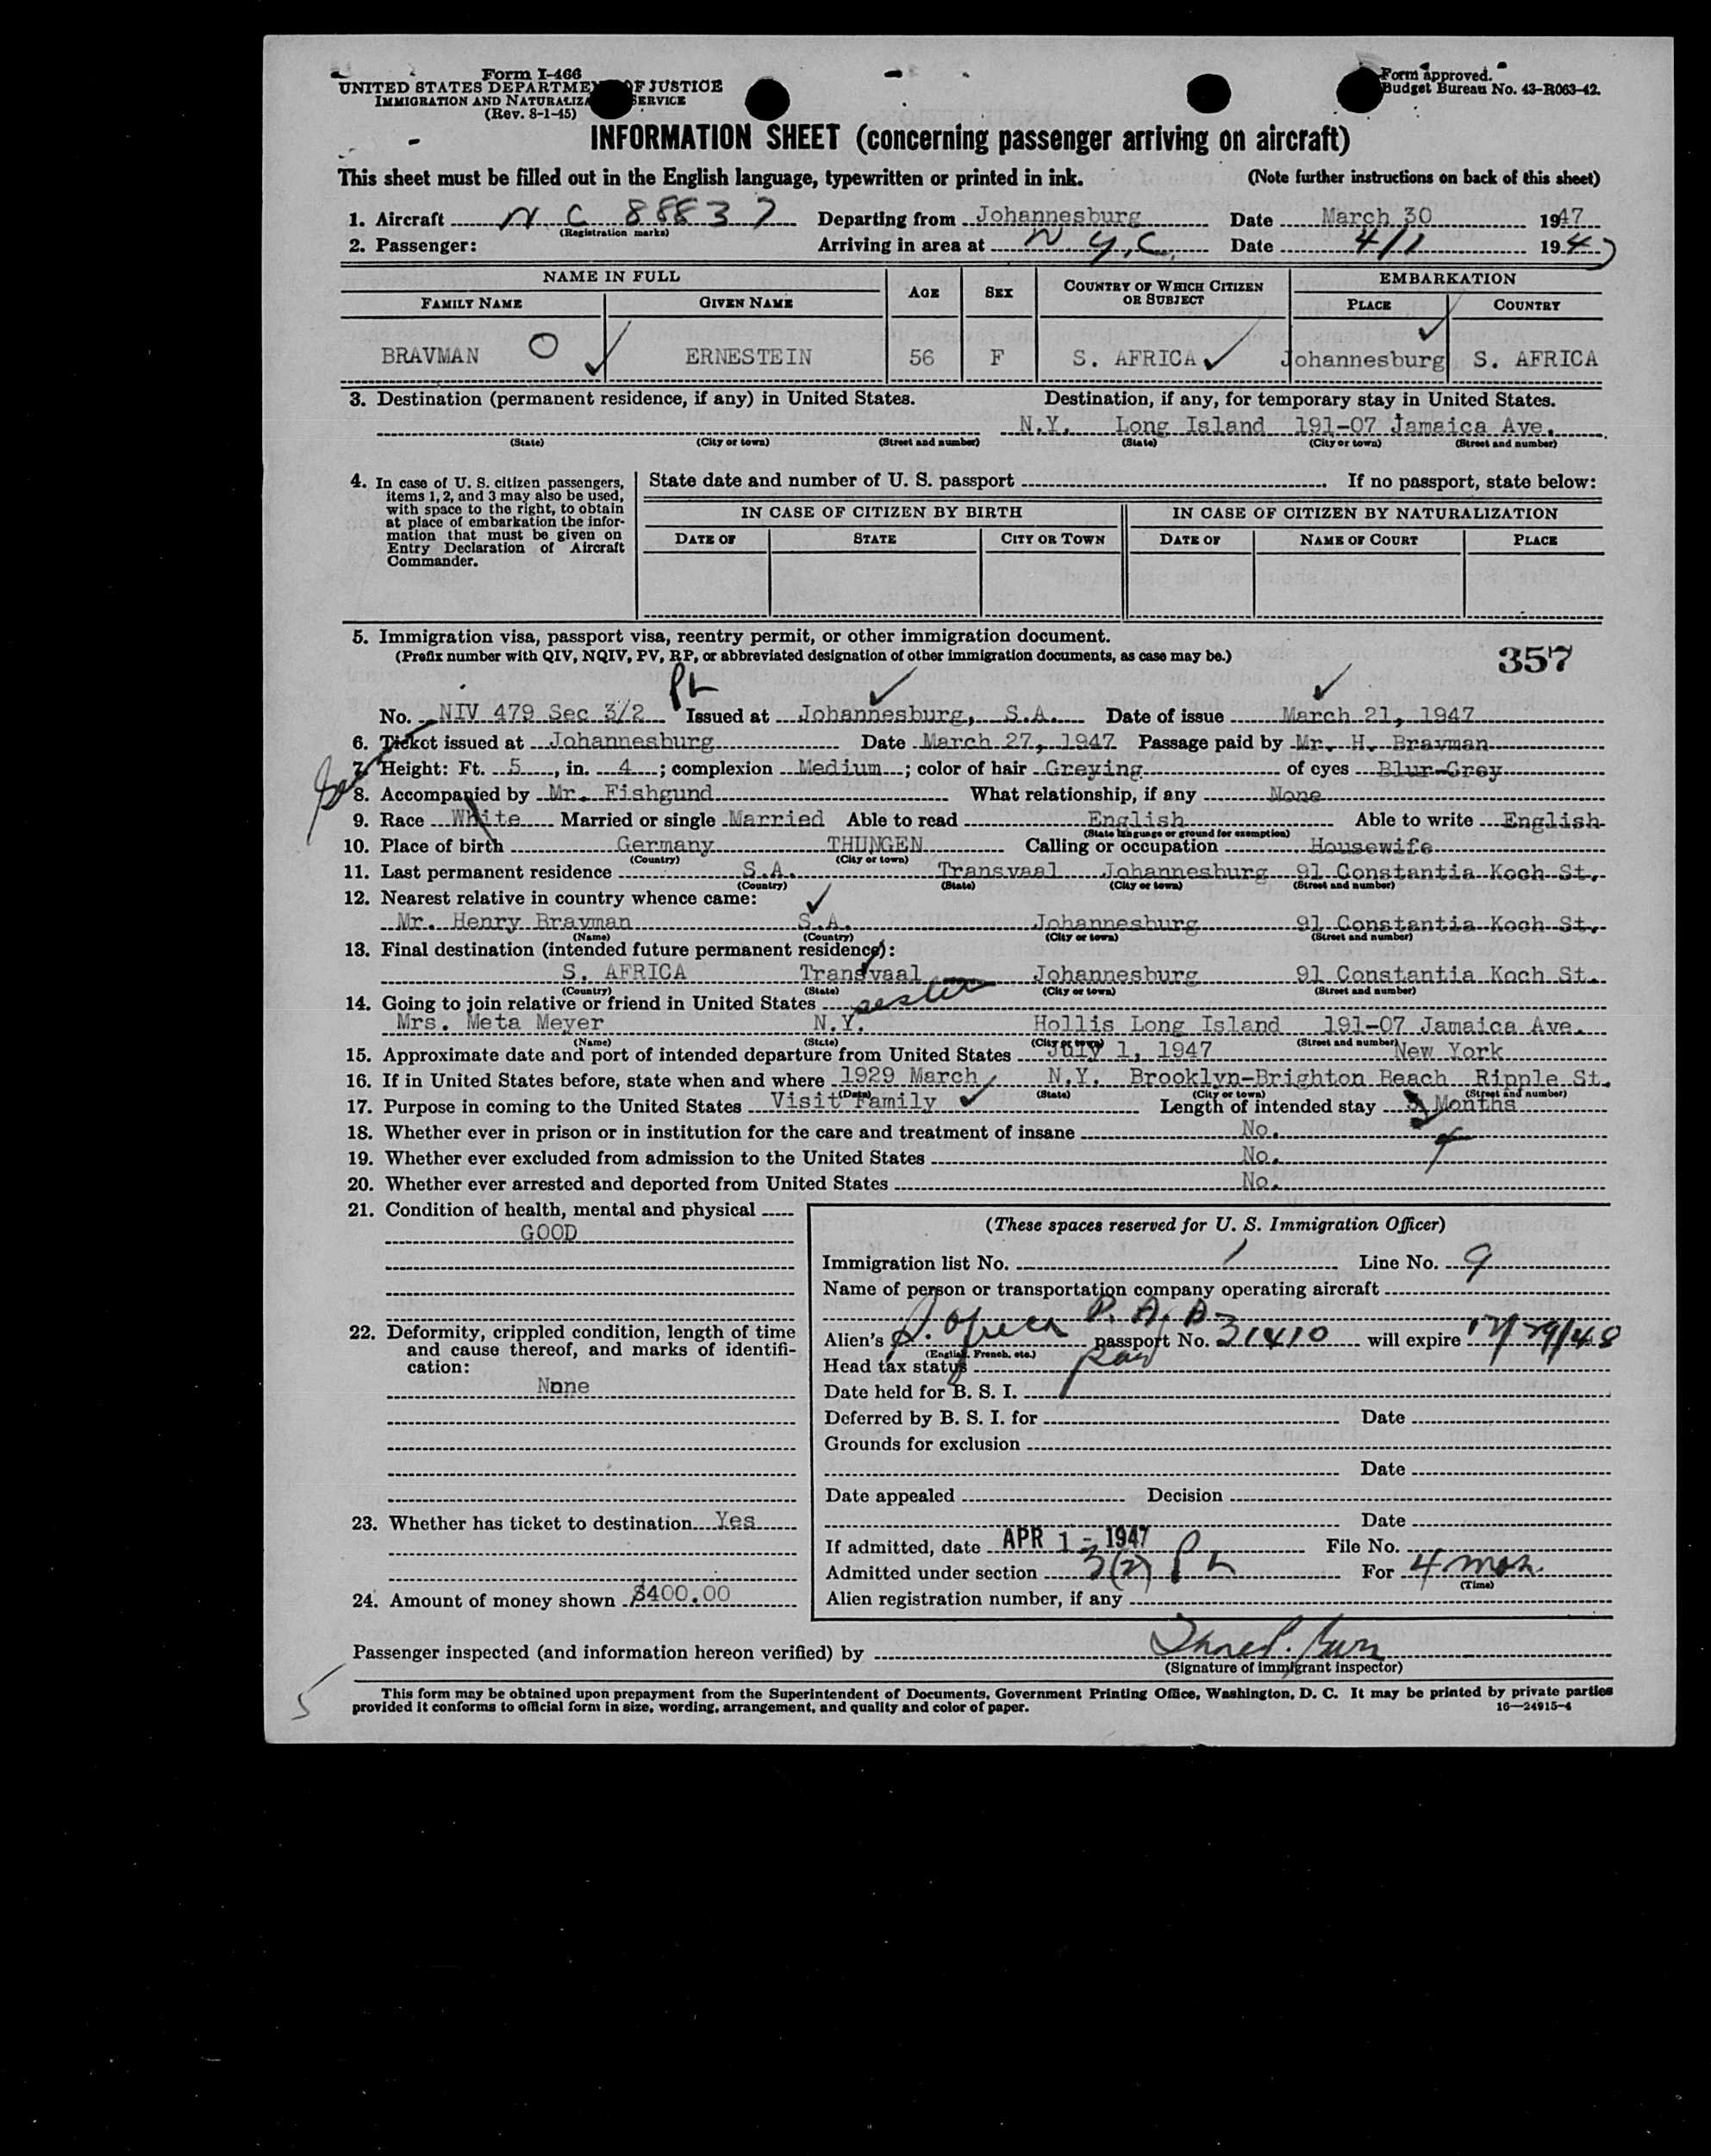 Form I-466
UNITED STATES DEPARTMENT OF JUSTICE
IMMIGRATION AND NATURALIZATION SERVICE
(Rev. 8-1-45)
Form approved.
Budget Bureau No. 43-R063-42.
INFORMATION SHEET (concerning passenger arriving on aircraft)
This sheet must be filled out in the English language, typewritten or printed in ink. (Note further instructions on back of this sheet)
1. Aircraft N C 88837 Departing from Johannesburg Date March 30 1947
(Registration marks)
2. Passenger: Arriving in area at N.Y.C. Date 4/1 1947
NAME IN FULL AGE SEX COUNTRY OF WHICH CITIZEN OR SUBJECT EMBARKATION
FAMILY NAME GIVEN NAME PLACE COUNTRY
BRAVMAN O ERNESTEIN 56 F S. AFRICA Johannesburg S. AFRICA
3. Destination (permanent residence, if any) in United States. Destination, if any, for temporary stay in United States.
N.Y. Long Island 191-07 Jamaica Ave.
(State) (City or town) (Street and number) (State) (City or town) (Street and number)
4. In case of U. S. citizen passengers, items 1, 2, and 3 may also be used, with space to the right, to obtain at place of embarkation the information that must be given on Entry Declaration of Aircraft Commander.
State date and number of U. S. passport If no passport, state below:
IN CASE OF CITIZEN BY BIRTH IN CASE OF CITIZEN BY NATURALIZATION
DATE OF STATE CITY OR TOWN DATE OF NAME OF COURT PLACE
5. Immigration visa, passport visa, reentry permit, or other immigration document.
(Prefix number with QIV, NQIV, PV, RP, or abbreviated designation of other immigration documents, as case may be.)
357
No. NIV 479 Sec 3/2 Issued at Johannesburg, S.A. Date of issue March 21, 1947
6. Ticket issued at Johannesburg Date March 27, 1947 Passage paid by Mr. H. Bravman
7. Height: Ft. 5, in. 4; complexion Medium; color of hair Greying of eyes Blur-Grey
8. Accompanied by Mr. Fishgund What relationship, if any None
9. Race White Married or single Married Able to read English Able to write English
(State language or ground for exemption)
10. Place of birth Germany THUNGEN Calling or occupation Housewife
(Country) (City or town)
11. Last permanent residence S.A. Transvaal Johannesburg 91 Constantia Koch St.
(Country) (State) (City or town) (Street and number)
12. Nearest relative in country whence came:
Mr. Henry Bravman S.A. Johannesburg 91 Constantia Koch St.
(Name) (Country) (City or town) (Street and number)
13. Final destination (intended future permanent residence):
S. AFRICA Transvaal Johannesburg 91 Constantia Koch St.
(Country) (State) (City or town) (Street and number)
14. Going to join relative or friend in United States sester
Mrs. Meta Meyer N.Y. Hollis Long Island 191-07 Jamaica Ave.
(Name) (State) (City or town) (Street and number)
15. Approximate date and port of intended departure from United States July 1, 1947 New York
16. If in United States before, state when and where 1929 March N.Y. Brooklyn-Brighton Beach Ripple St.
(Date) (State) (City or town) (Street and number)
17. Purpose in coming to the United States Visit Family Length of intended stay 3 Months
4
18. Whether ever in prison or in institution for the care and treatment of insane No.
19. Whether ever excluded from admission to the United States No.
20. Whether ever arrested and deported from United States No.
21. Condition of health, mental and physical
GOOD
22. Deformity, crippled condition, length of time and cause thereof, and marks of identification:
None
23. Whether has ticket to destination Yes
24. Amount of money shown $400.00
(These spaces reserved for U. S. Immigration Officer)
Immigration list No. 1 Line No. 9
Name of person or transportation company operating aircraft
P. A. A.
Alien's S. Africa passport No. 31410 will expire 12/29/48
(English, French, etc.)
Head tax status
Date held for B. S. I.
Deferred by B. S. I. for Date
Grounds for exclusion
Date
Date appealed Decision
Date
If admitted, date APR 1 - 1947 File No.
Admitted under section 3(2) PL For 4 mos.
(Time)
Alien registration number, if any
Passenger inspected (and information hereon verified) by
(Signature of immigrant inspector)
This form may be obtained upon prepayment from the Superintendent of Documents, Government Printing Office, Washington, D. C. It may be printed by private parties
provided it conforms to official form in size, wording, arrangement, and quality and color of paper. 16—24915-4